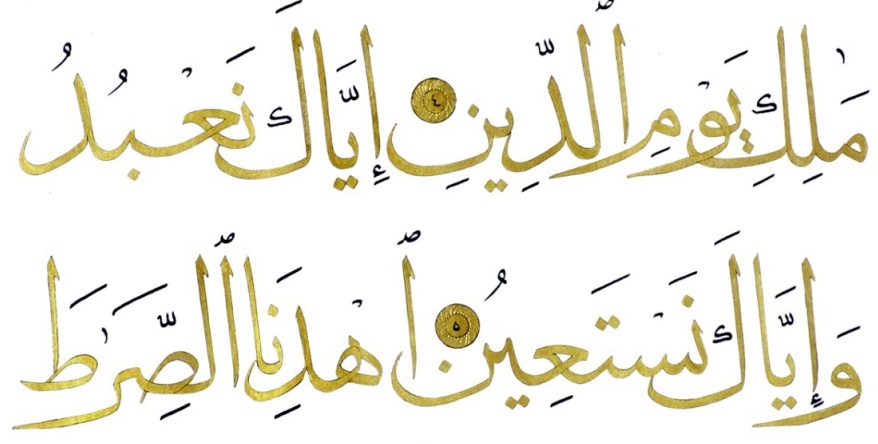 مَٰلِكِ يَوْمِ ٱلدِّينِ ٤ إِيَّاكَ نَعْبُدُ
وَإِيَّاكَ نَسْتَعِينُ ٥ ٱهْدِنَا ٱلصِّرَٰطَ